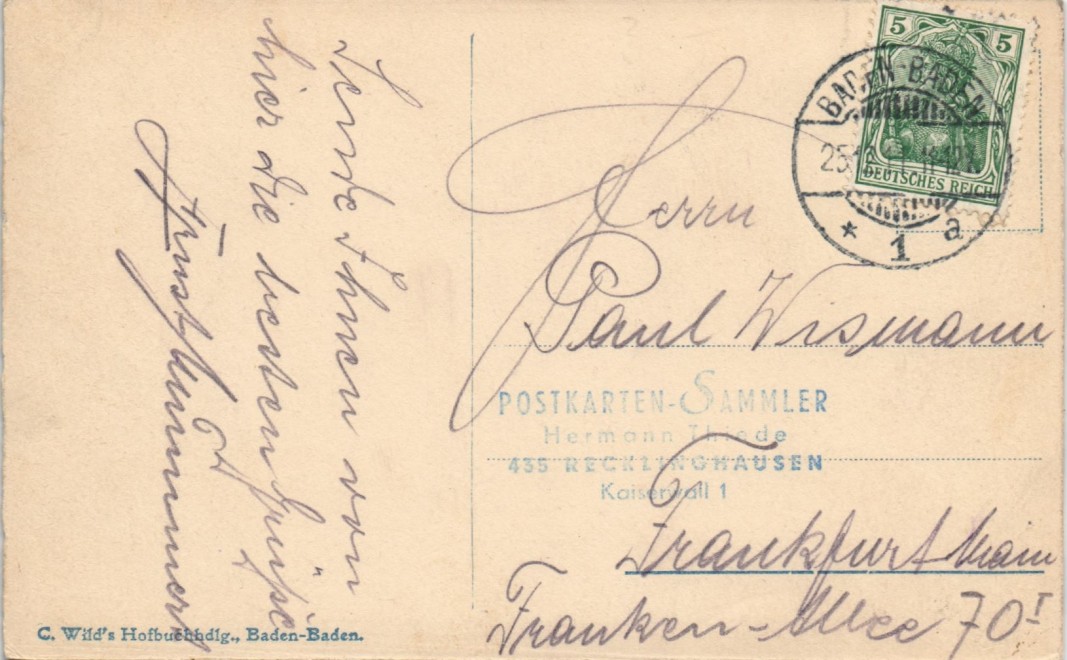 Sende Ihnen von
hier die besten Grüsse
Ernst
Herrn
Paul Wismann
Frankfurt Main
Franken-Allee 70 I
5 5
DEUTSCHES REICH
BADEN-BADEN
25.12
* 1 a
POSTKARTEN-SAMMLER
Hermann Thiede
435 RECKLINGHAUSEN
Kaiserwall 1
C. Wild's Hofbuchhdlg., Baden-Baden.